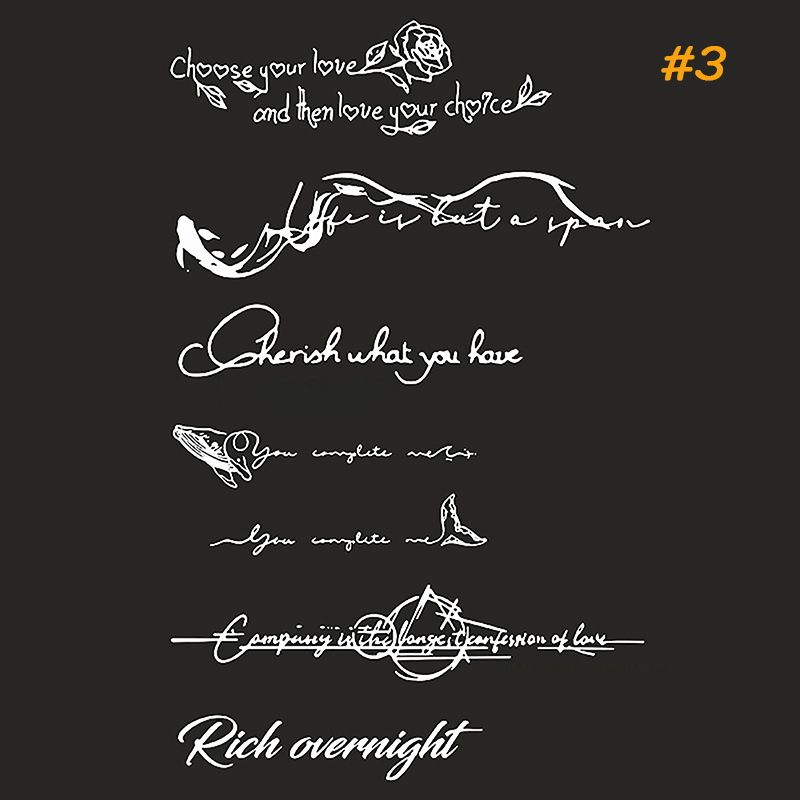 #3
Choose your love
and then love your choice
Life is but a span
Cherish what you have
You complete me
You complete me
Company is the longest confession of love
Rich overnight